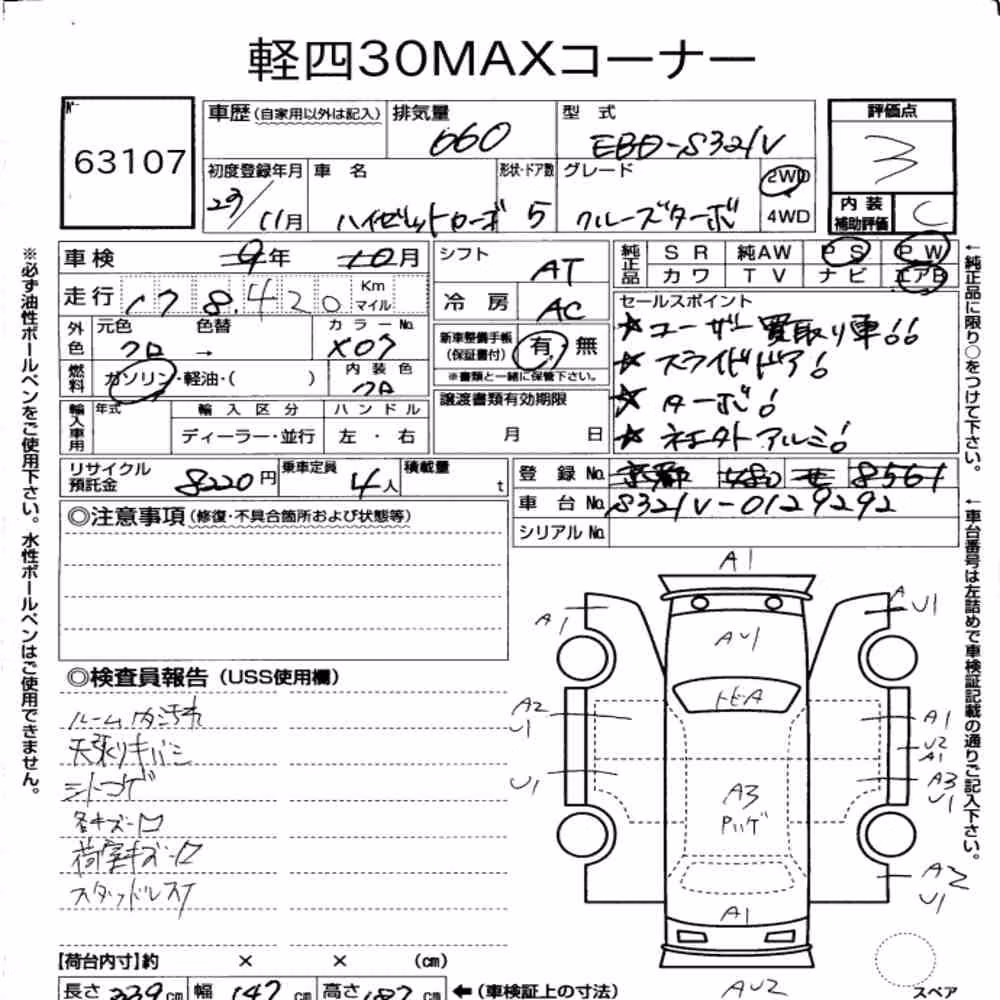 軽四30MAXコーナー
№
63107
車歴 (自家用以外は記入)
排気量
660
型 式
EBD-S321V
評価点
3
初度登録年月
29/11月
車 名
ハイゼットカーゴ
形状・ドア数
5
グレード
クルーズターボ
2WD
4WD
内 装
補助評価
C
車検
9年 10月
シフト
AT
純正品
SR 純AW PS PW
カワ TV ナビ エアB
走行
178,420
Km
マイル
冷 房
AC
セールスポイント
★ユーザー買取り車!!
★スライドドア!
★ターボ!
★社外アルミ!
外色
元色
クロ
→
色替
カラーNo.
X07
新車整備手帳
(保証書付)
有 無
※書類と一緒に保管下さい。
燃料
ガソリン・軽油・( )
内装色
クロ
輸入車用
年式
輸入区分
ディーラー・並行
ハンドル
左・右
譲渡書類有効期限
月 日
リサイクル
預託金
8220円
乗車定員
4人
積載量
t
登録No.
480
8561
車台No.
S321V-0129292
シリアルNo.
◎注意事項 (修復・不具合箇所および状態等)
◎検査員報告 (USS使用欄)
ルーム内汚れ
天張りキバミ
シートコゲ
各キズ・凹
荷室キズ・凹
スタッドレス
A1
A1
A U1
AU1
トビA
A2
U1
U1
A1
U2
A1
A3
U1
A3
Pハゲ
A2
U1
A1
AU2
スペア
【荷台内寸】約 × × (cm)
長さ 339cm
幅 147cm
高さ 187cm
←(車検証上の寸法)
※必ず油性ボールペンをご使用下さい。水性ボールペンはご使用できません。
←純正品に限り○をつけて下さい。
←車台番号は左詰めで車検証記載の通りご記入下さい。